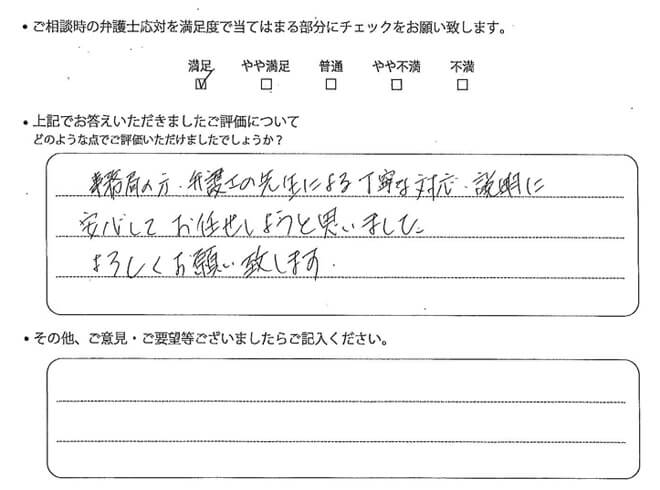 ・ご相談時の弁護士応対を満足度で当てはまる部分にチェックをお願い致します。
満足 やや満足 普通 やや不満 不満
☑ □ □ □ □
・上記でお答えいただきましたご評価について
どのような点でご評価いただけましたでしょうか？
事務局の方・弁護士の先生による丁寧な対応・説明に
安心して お任せしようと思いました。
よろしくお願い致します.
・その他、ご意見・ご要望等ございましたらご記入ください。